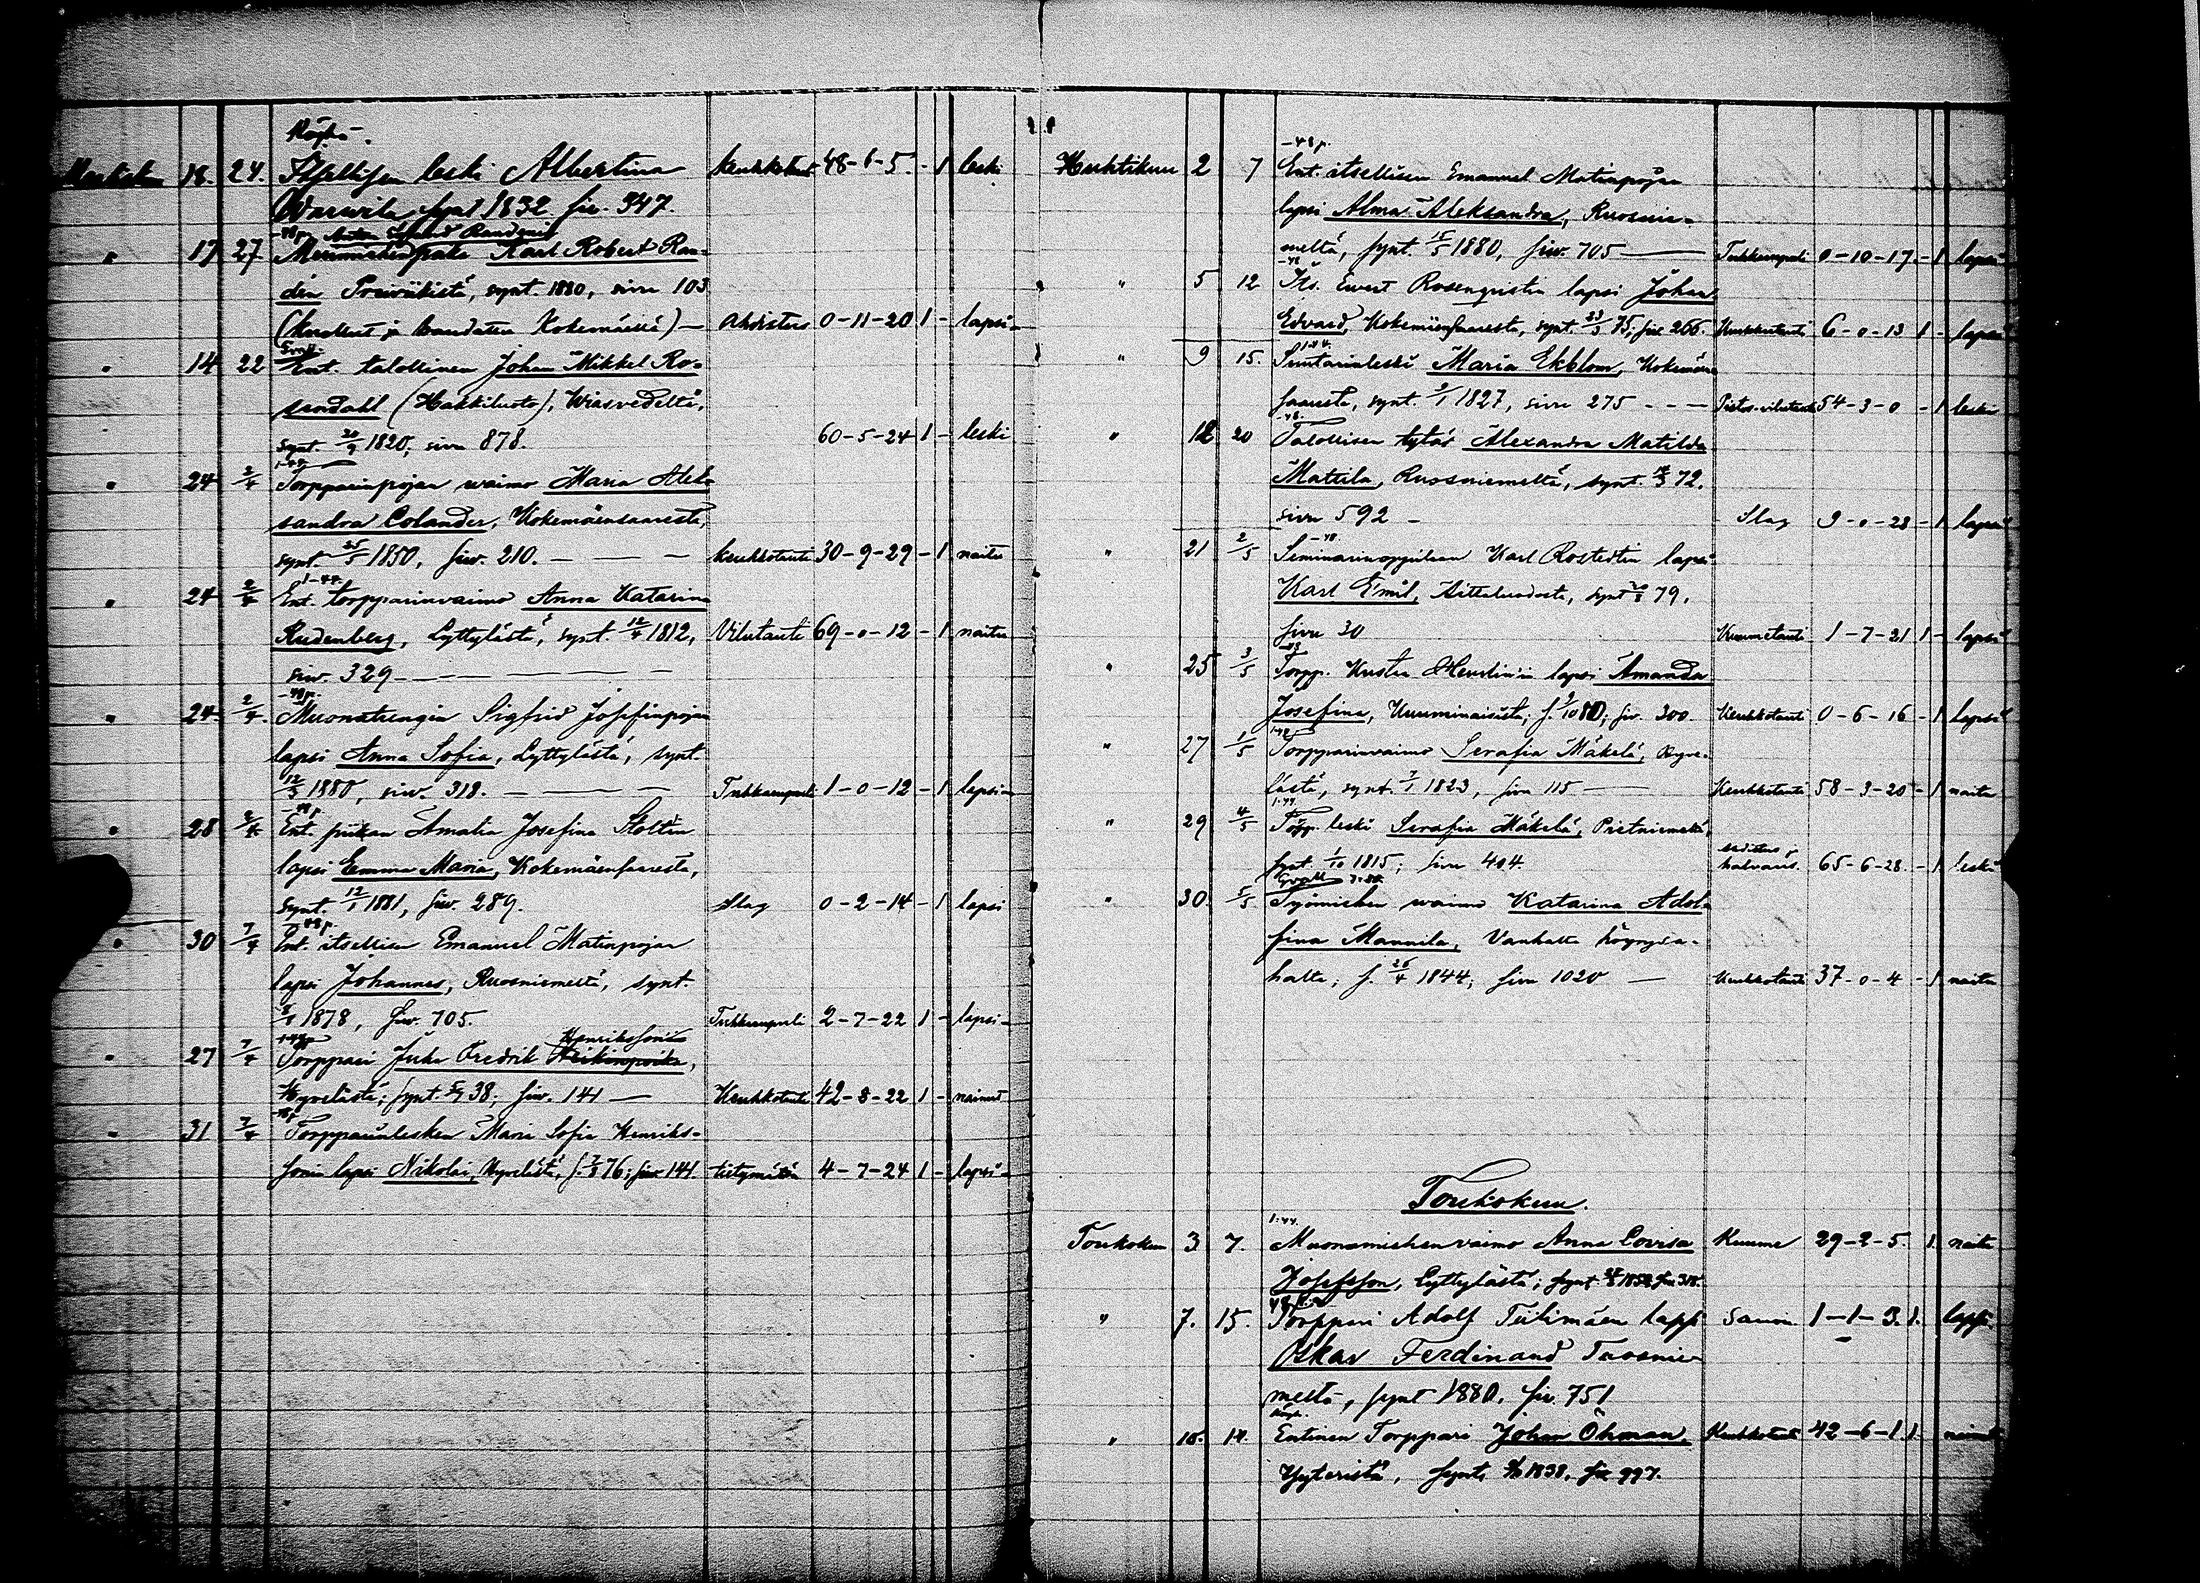 Köyhä.
18. 24. Itsellisen leski Albertina keuhkotauti 48-6-5. - 1 leski
Warwila synt 1832 siv. 347.
" 17 27 Merimiehenpoika Karl Robert Ran-
din Preiviikistä, synt. 1880, sivu 103
(kuollut ja haudattu Kokemäellä) — Ahdistus 0-11-20 1 - lapsi
" 14 22 Ent. talollinen Johan Mikkel Ro-
sendahl (Hakkiluoto), Wiasvedeltä,
synt. 20/9 1820, sivu 878. 60-5-24 1 - leski
" 24 2/4 Torpparinpojan waimo Maria Alek-
sandra Colander, Kokemäensaaresta,
synt. 25/5 1850, siv. 210. — keuhkotauti 30-9-29 - 1 naitu
1-44.
" 24 2/4 Ent. torpparinvaimo Anna Katarina
Rudenberg, Lyttylästä, synt. 12/4 1812, Vilutauti 69-0-12 - 1 naitu
siv. 329 —
-48p.
" 24 2/4 Muonatrengin Sigfrid Josefinpojan
lapsi Anna Sofia, Lyttylästä, synt.
12/3 1880, siv. 318. — Tuhkarupuli 1-0-12 - 1 lapsi
-48p
" 28 Ent. piikan Amalia Josefina Stoltin
lapsi Emma Maria, Kokemäensaaresta,
synt. 12/1 1881, siv. 289. Slag 0-2-14 - 1 lapsi
-48p.
" 30 7/4 Ent. itsellisen Emanuel Matinpojan
lapsi Johannes, Ruosniemeltä, synt.
1878, siv. 705. Tuhkarupuli 2-7-22 1 - lapsi
Henriksson
" 27 7/4 Torppari Juha Fredrik Heikinpoika,
Hyvelästä; synt. 38; siv. 141 — Keuhkotauti 42-8-22 1 - nainut
" 31 7/4 Torpparinlesken Maria Sofia Henriks-
sonin lapsi Nikolai, Hyvelästä, s. 7/8 76; siv 141. tietymätön 4-7-24 1 - lapsi
-48p.
Huhtikuu 2 7 Ent. itsellisen Emanuel Matinpojan
lapsi Alma Aleksandra, Ruosnie-
meltä, synt. 15/5 1880, siv. 705 — Tuhkarupuli 0-10-17 - 1 lapsi
-48
" 5 12 Its. Evert Rosenqvistin lapsi Johan
Edvard, Kokemäensaaresta, synt. 23/3 75; siv 266. Keuhkotauti 6-0-13 1 - lapsi
" 9 15. Suutarinleski Maria Ekblom, Kokemäen-
saaresta, synt. 9/1 1827, sivu 275 - - - Pistos-vilutauti 54-3-0 - 1 leski
-48.
" 12 20 Talollisen tytär Alexandra Matilda
Mattila, Ruosniemeltä, synt. 72.
sivu 592 - Slag 9-0-28 - 1 lapsi
-48.
" 21 2/5 Seminarinoppilaan Karl Rostedtin lapsi
Karl Emil, Aittaluodosta, synt 79.
sivu 30 Kuumetauti 1-7-21 1 - lapsi
" 25 3/5 Torpp. Kustaa Henrlin'in lapsi Amanda
Josefina, Kuuminaisista; s. 9/10 80; siv. 300. Keuhkotauti 0-6-16 - 1 lapsi
" 27 1/5 Torpparinvaimo Serafia Mäkelä, Hyve-
lästä, synt. 7/1 1823, sivu 115 — Keuhkotauti 58-3-20 - 1 naitu
1-44
" 29 4/5 Torpp. leski Serafia Mäkelä, Pietniemeltä,
synt. 1/10 1815; sivu 404. halvaus. 65-6-28. - 1 leski
" 30. 5/5 Työmiehen waimo Katarina Adol-
fina Mannila, Vanhalta
halta; s. 26/4 1844; sivu 1020 — Keuhkotauti 37-0-4 - 1 naitu
Toukokuu.
1-44.
Toukokuu 3 7. Muonamiehenvaimo Anna Lovisa Kuume 29-2-5. 1. naitu
Josefsson, Lyttylästä; synt. 1852 siv 318.
" 7. 15. Torppari Adolf Tiilimäen lapsi 1-1-3. 1. lapsi.
Oskar Ferdinand Ruosnie-
meltä, synt 1880. siv. 751
" 10. 14. Entinen Torppari Johan Öhman, Keuhkotauti 42-6-1 1. nainut
Yyteristä, synt. 1838. siv 997.